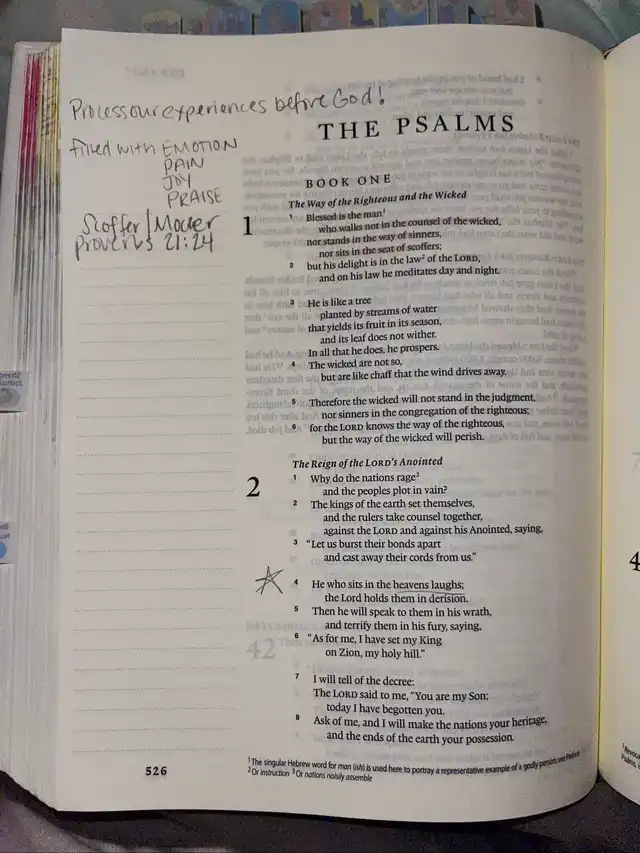 Process our experiences before God!
filled with EMOTION
PAIN
JOY
PRAISE
Scoffer/Mocker
proverbs 21:24
THE PSALMS
BOOK ONE
The Way of the Righteous and the Wicked
1
1 Blessed is the man1
who walks not in the counsel of the wicked,
nor stands in the way of sinners,
nor sits in the seat of scoffers;
2 but his delight is in the law2 of the LORD,
and on his law he meditates day and night.
3 He is like a tree
planted by streams of water
that yields its fruit in its season,
and its leaf does not wither.
In all that he does, he prospers.
4 The wicked are not so,
but are like chaff that the wind drives away.
5 Therefore the wicked will not stand in the judgment,
nor sinners in the congregation of the righteous;
6 for the LORD knows the way of the righteous,
but the way of the wicked will perish.
The Reign of the LORD's Anointed
2
1 Why do the nations rage3
and the peoples plot in vain?
2 The kings of the earth set themselves,
and the rulers take counsel together,
against the LORD and against his Anointed, saying,
3 “Let us burst their bonds apart
and cast away their cords from us.”
4 He who sits in the heavens laughs;
the Lord holds them in derision.
5 Then he will speak to them in his wrath,
and terrify them in his fury, saying,
6 “As for me, I have set my King
on Zion, my holy hill.”
7 I will tell of the decree:
The LORD said to me, “You are my Son;
today I have begotten you.
8 Ask of me, and I will make the nations your heritage,
and the ends of the earth your possession.
526
1 The singular Hebrew word for man (ish) is used here to portray a representative example of a godly person; see Preface
2 Or instruction 3 Or nations noisily assemble
42
7
4